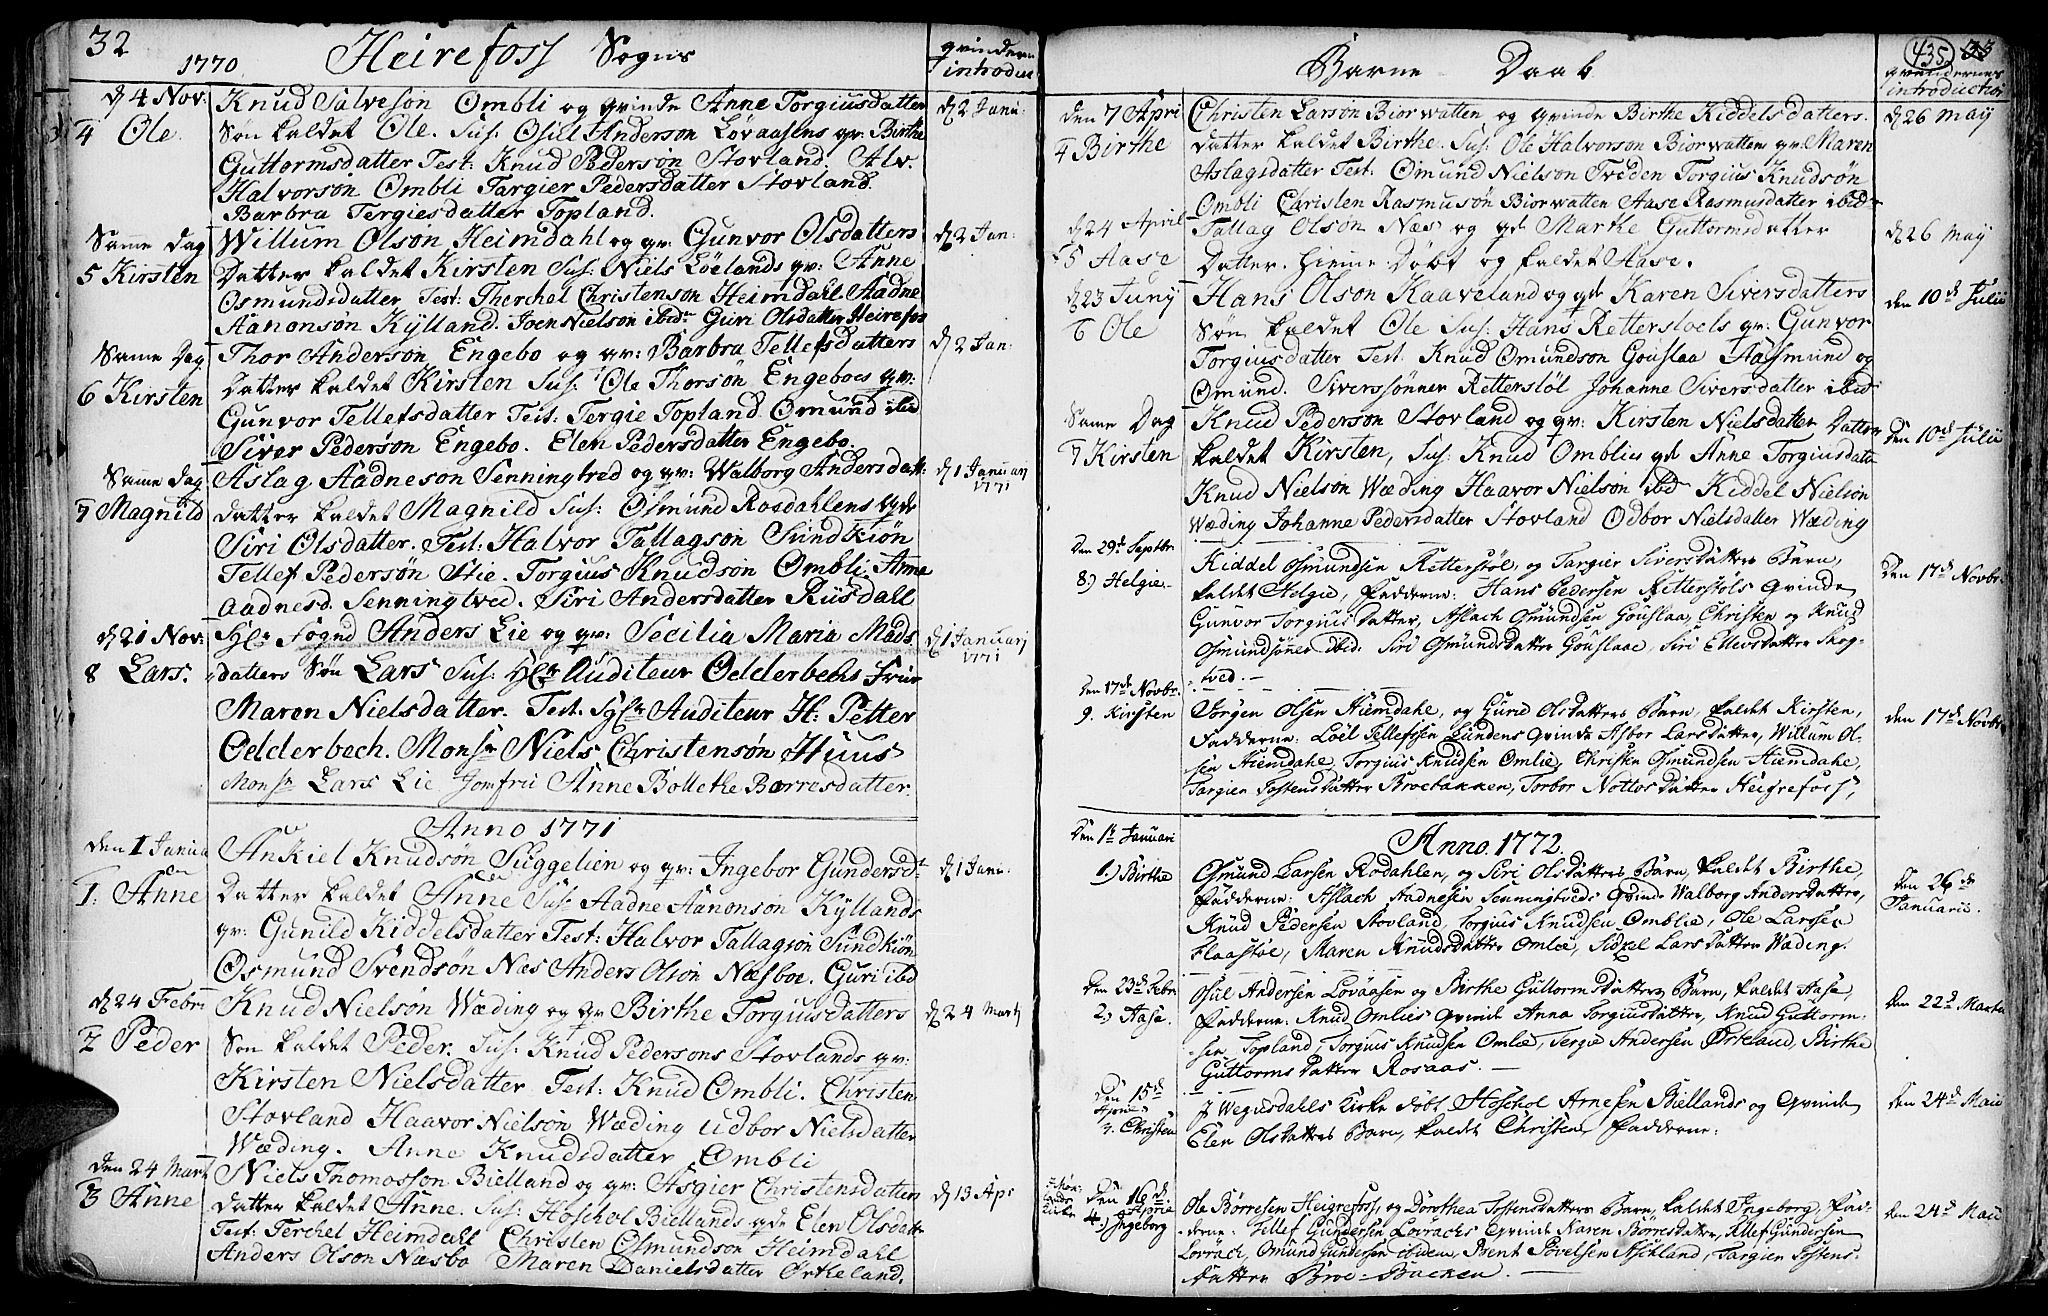 32
1770. Heirefoss Sogns
qvindern
introduc
d 4 Nov: Knud Salveson Ombli og qvinde Anne Torgiusdatter d 2 Janu:
4 Ole. Søn kaldet Ole. Sus: Osill Anderson Løvaasens qv: Birthe
Guttormsdatter Test: Knud Pederson Stovland. Alv.
Halvorson Ombli Targier Pedersdatter Stovland.
Barbra Tergiesdatter Topland.
Samme dag Willum Olson Heimdahl og qv: Gunvor Olsdatters d 2 Jan:
5 Kirsten Datter kaldet Kirsten Sus: Niels Löelands qv: Anne
Osmundsdatter, Test: Therchel Christenson Heimdahl Aadne
Aanonsøn Kylland. Joen Nielson ibid Guri Olsdatter Heirefos
Samme Dag Thor Anderson Engebo og qv: Barbra Tellefsdatters d 2 Jan:
6 Kirsten Datter kaldet Kirsten Sus: Ole Thorsøn Engeboes qv:
Gunvor Tellefsdatter Test: Tergie Topland Omund ibid
Siver Pederson Engebo. Elen Pedersdatter Engebo.
Samme dag Aslag Aadneson Senningtved og qv: Walborg Andersdatt: d 1 Januari
1771
7 Magnild datter kaldet Magnild Sus: Osmund Rosdahlens qvde
Siri Olsdatter. Test: Halvor Tallagson Sundtiøn
Tellef Pedersøn Stie. Torgius Knudson Ombli. Anne
Aadnesd. Senningtved. Siri Andersdatter Riisdall
d 21 Nov: Hr: fognd Anders Lie og qv: Secilia Maria Mads d 1 Januarj
1771
8 Lars. datters Søn Lars Sus: Hr Auditeur Oelderbechs Frue
Maren Nielsdatter. Test. Hr Auditeur H: Petter
Oelderbech. Monsr Niels Christensøn Huus
Monsr Lars Lie Jomfru Anne Bolleke Borresdatter.
Anno 1771
den 1 Janua Ankiel Knudsøn Suggelien og qv: Ingebor Gundersdt d 1 Janu:
1: Anne Datter kaldet Anne Sus: Aadne Aanonson Kyllands
qv: Gunild Kiddelsdatter Test: Halvor Tallagson Sundkiøn
Osmund Svendsøn Næs Anders Olson Næsboe. Guri ibd
d 24 Febru Knud Nielsøn Wæding og qv Birthe Torgiusdatters d 24 Martj
2 Peder Søn kaldet Peder. Sus: Knud Pedersons Stovlands qv:
Kirsten Nielsdatter. Test: Knud Ombli. Christen
Stovland Haavor Nielson Wæding udbor Nielsdatter
Wæding. Anne Knudsdatter Ombli
den 24 Mart Niels Thomosson Bielland og qv: Asgier Christensdatter d 13 Apr
3 Anne datter kaldet Anne. Sus: Hoschol Biellands qde Elen Olsdatt
Test: Terchel Heimdahl Christen Osmundson Heimdahl
Anders Olson Næsbo Maren Danielsdatter Ørkeland.
435 33
Barne Daab
qvindernes
introduction
den 7 Apri Christen Larsøn Biorwatten og qvinde Birthe Kiddelsdatters. d 26 May
4 Birthe datter kaldet Birthe. Sus: Ole Halvorson Biorwatten qv: Maren
Aslagsdatter Test: Omund Nielson Treden Torgius Knudsøn
Ombli Christen Rasmusøn Biorwatten Aase Rasmusdatter ibid
d 24 April Tallag Olson Næs og qde Marke Guttormsdatter d 26 May
5 Aase Datter. Hieme-Døbt og kaldet Aase.
d 23 Junij Hans Olson Kaaveland og qde Karen Siversdatters den 10de Julii
6 Ole Søn kaldet Ole Sus: Hans Retterstoels qv: Gunvor
Torgiusdatter Test: Knud Omundson Gouslaa Aasmund og
Omund. Siverssønner Retterstøl Johanne Siversdatter ibid
Samme Dag Knud Pederson Stovland og qv: Kirsten Nielsdatter Datter den 10de Julii
7 Kirsten kaldet Kirsten, Sus: Knud Omblies qde Anne Torgiusdatt
Knud Nielson Wæding Haavor Nielson ibd Kiddel Nielson
Wæding Johanne Pedersdatter Stovland Odbor Nielsdatter Wæding
Den 29de Septbr: Kiddel Osmundsen Retterstøl, og Targier Siversdatters Barn, Den 17de Novbr.
8.) Helgie.- kaldet Helgie, Fadderne: Hans Pedersen Rettersføls Qvinde
Gunvor Torgiusdatter, Aslach Osmundsen Gouslaa, Christen og Knud
Osmundsøner ibid: Siri Osmundsdatter Gouslaae, Siri Ellevsdatter Skog-
tved.-
Den 17de Novbr. Jørgen Olsen Hiemdahl, og Gurie Olsdatters Barn, kaldet Kirsten, Den 17de Novbr
9. Kirsten Fadderne: Loel Tellefsen Lundens Qvinde Asbor Larsdatter, Willum Ol-
sen Hiemdahl, Torgius Knudsen Omlie, Christen Osmundsen Hiemdahl,
Targien Tostensdatter Broebakken, Torbor Nottosdatter Heigrefoss,
Anno. 1772.
Den 1te Januari Osmund Larsen Rosdahlen, og Siri Olsdatters Barn, kaldet Birthe, Den 26de
Januarii.
1.) Birthe Fadderne: Aslach Aadnesen Senningtveds Qvinde Walborg Andersdatter,
Knud Pedersen Stovland, Torgius Knudsen Omblie, Ole Larsen
Flaastøe, Maren Knudsdatter Omlie, Sidzel Larsdatter Wæding.
Den 23de Febr Osul Andersen Lovaasen og Birthe Guttormsdatters Barn, kaldet Aase, Den 22de Martii
2.) Aase. Fadderne: Knud Omlies Qvinde Anna Torgiusdatter, Knud Guttorm-
sen Topland, Torgius Knudsen Omlie, Tergie Andersen Ørkeland, Birthe
Guttormsdatter Rosaas.-
Den 15de
April J Wegusdahls Kirke døbt Hoschol Arnesen Biellands og Qvinde Den 24de Maii
3. Christen Elen Olsdatters Barn, kaldet Christen, Fadderne:
Den 16de
Aprie Ole Börresen Heigrefoss, og Dorothea Tostensdatters Barn kaldet Ingeborg, Fad- Den 24de Maii
4. Ingeborg derne: Tellef Gundersen Lovrachs Qvinde Karen Börresdatter, Tellef Gundersen
Lovrach, Omund Gundersen ibidem, Bent Povelsen Askland, Targien Tostens-
datter Broe-Backen.-